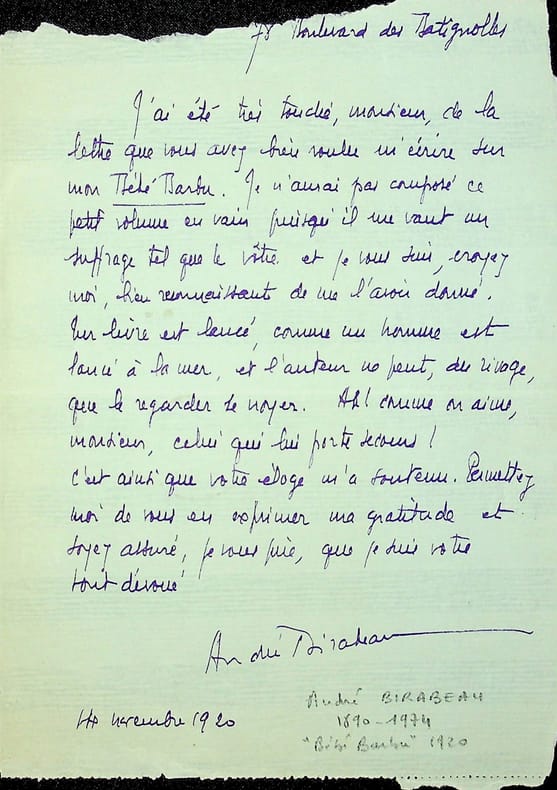 78 Boulevard des Batignolles
J'ai été très touché, monsieur, de la
lettre que vous avez bien voulu m'écrire sur
mon Bébé Barbu. Je n'aurai pas composé ce
petit volume en vain puisqu'il me vaut un
suffrage tel que le vôtre et je vous suis, croyez
moi, bien reconnaissant de me l'avoir donné.
Un livre est lancé, comme un homme est
lancé à la mer, et l'auteur ne peut, du rivage,
que le regarder se noyer. Ah! comme on aime,
monsieur, celui qui lui porte secours!
C'est ainsi que votre éloge m'a soutenu. Permettez
moi de vous en exprimer ma gratitude et
soyez assuré, je vous prie, que je suis votre
tout dévoué
André Birabeau
14 novembre 1920
André BIRABEAU
1890-1974
"Bébé Barbu" 1920